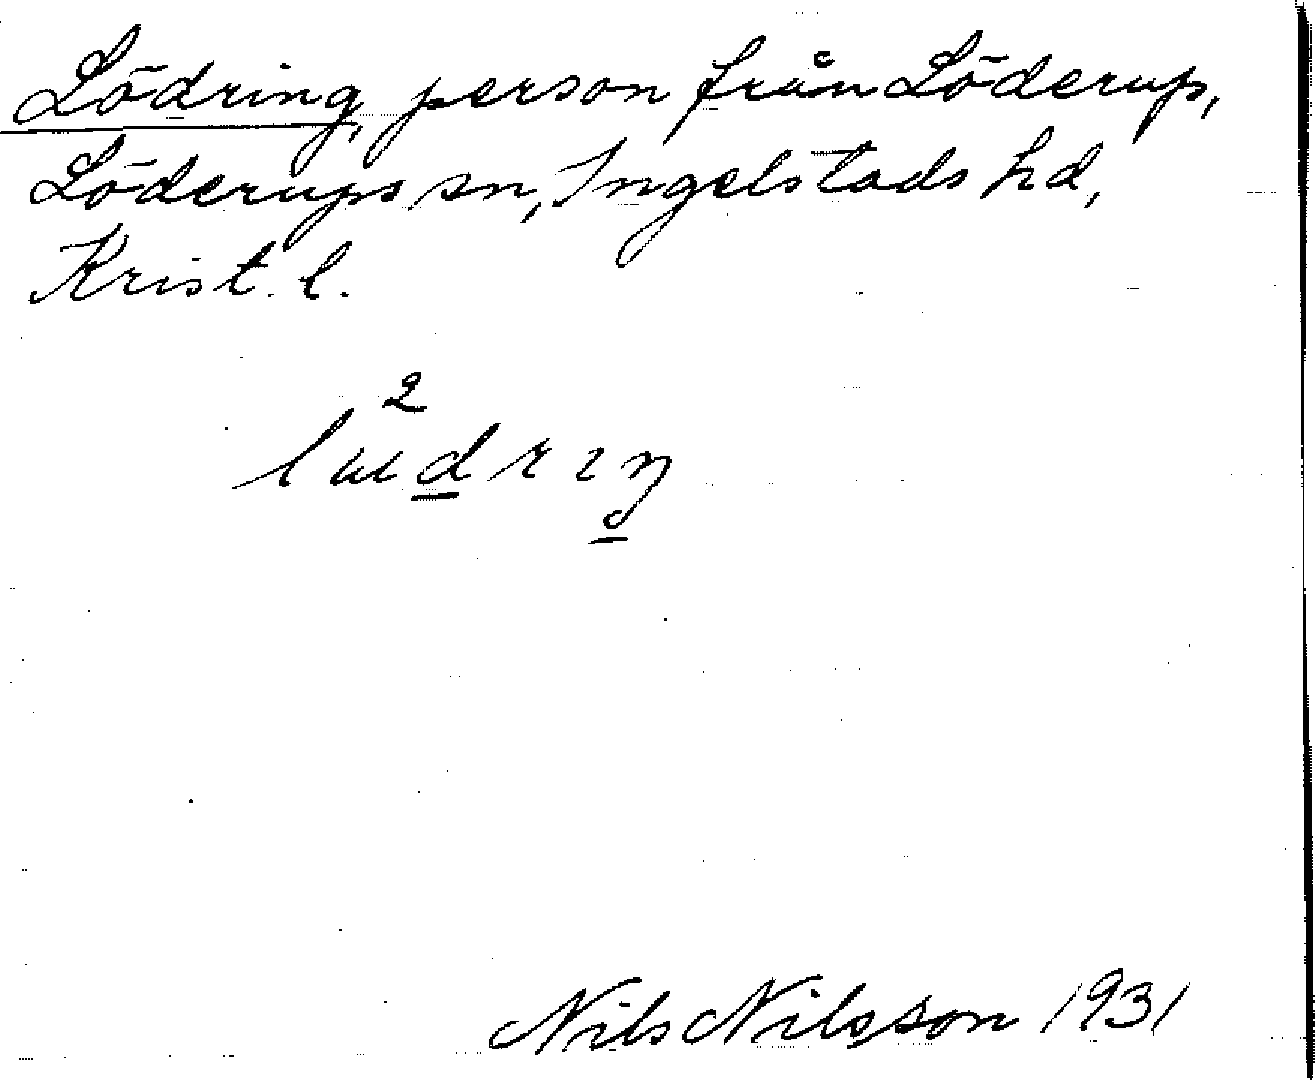 Lödring, person från Löderup,
Löderups sn, Ingelstads hd,
Krist. l.
2
Nils Nilsson 1931